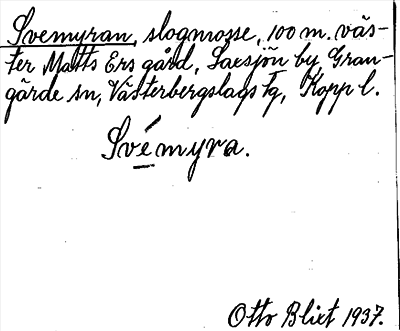 Svemyran, slogmosse, 100 m. väs-
ter Matts Ers gård, Saxsjön by, Gran-
gärde sn, Västerbergslags tg, Kopp l.
Svémyra.
Otto Blixt 1937.